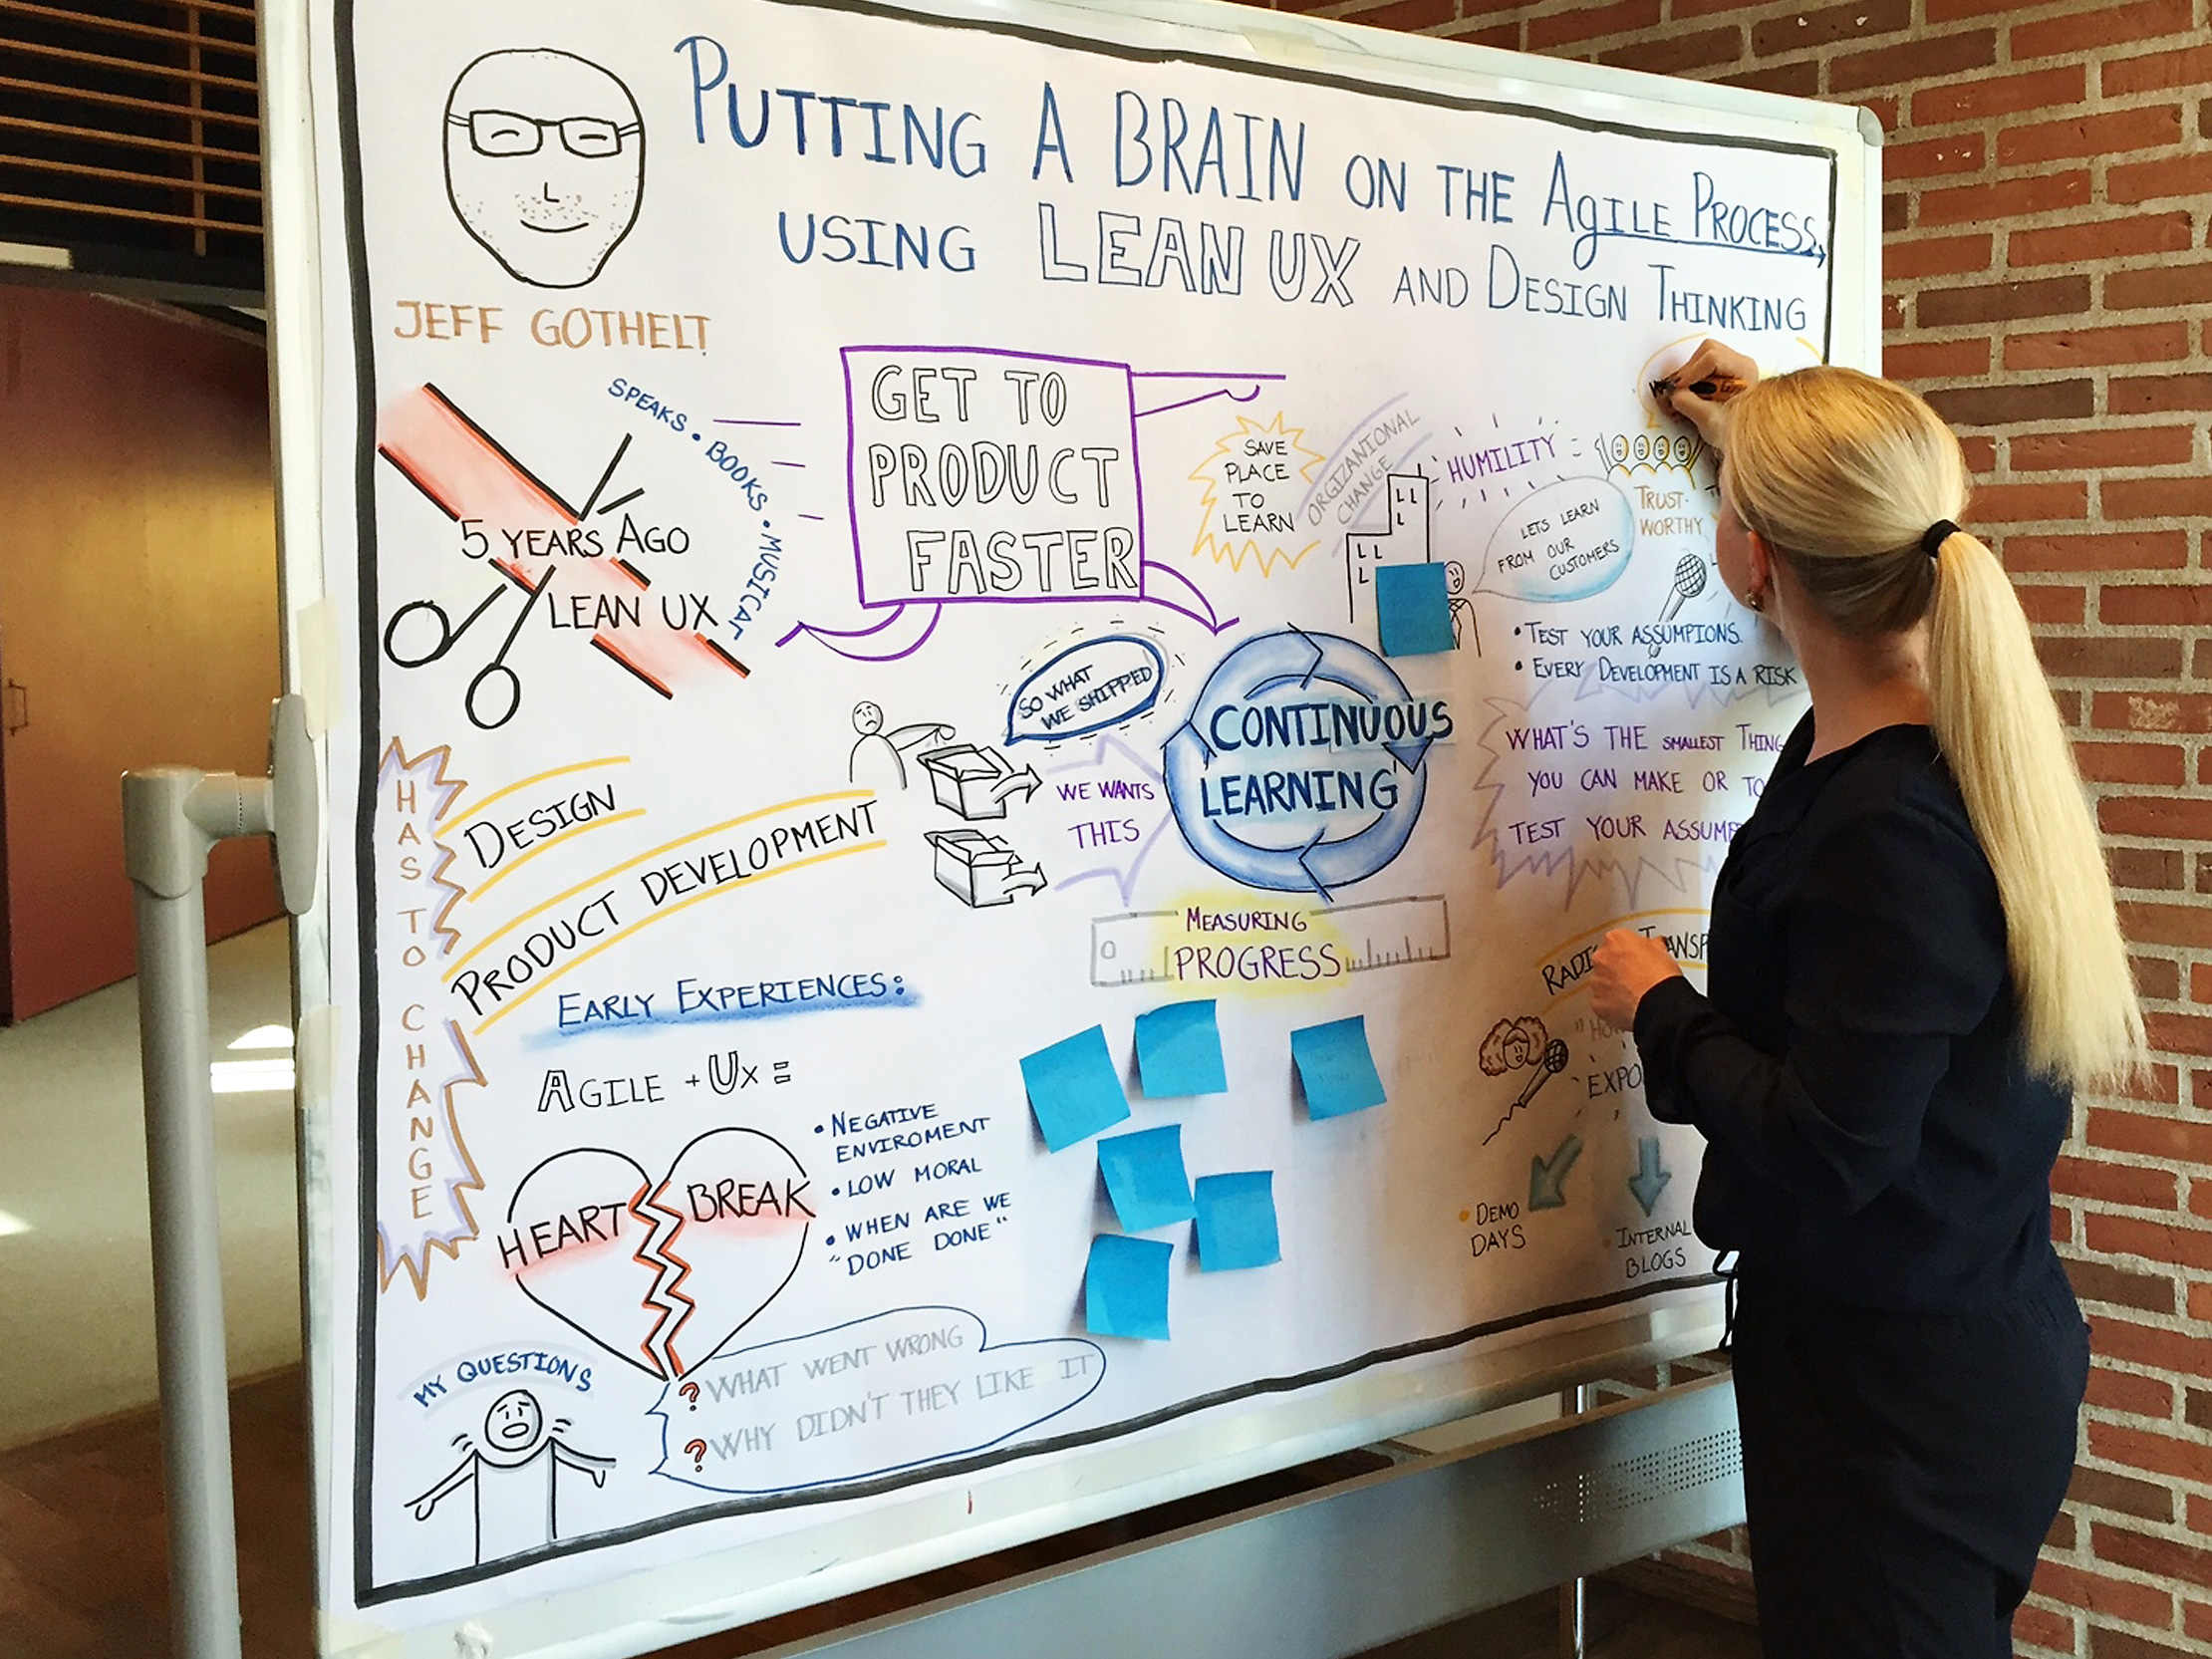 PUTTING A BRAIN ON THE AgILE PROCESS,
USING LEAN UX AND DESIGN THINKING
JEFF GOTHELT
SPEAKS • BOOKS • MUSICAL
5 YEARS AGO
LEAN UX
GET TO
PRODUCT
FASTER
SAVE
PLACE
TO
LEARN
ORGIZANIONAL
CHANGE
HUMILITY =
TRUST-
WORTHY
LETS LEARN
FROM OUR
CUSTOMERS
• TEST YOUR ASSUMPIONS.
• EVERY DEVELOPMENT IS A RISK
WHAT'S THE SMALLEST THING
YOU CAN MAKE OR TO
TEST YOUR ASSUMP
SO WHAT
WE SHIPPED
WE WANTS
THIS
CONTINUOUS
LEARNING
MEASURING
PROGRESS
HAS TO CHANGE
DESIGN
PRODUCT DEVELOPMENT
EARLY EXPERIENCES:
AGILE + UX =
HEART BREAK
• NEGATIVE
ENVIROMENT
• LOW MORAL
• WHEN ARE WE
"DONE DONE"
MY QUESTIONS
? WHAT WENT WRONG
? WHY DIDN'T THEY LIKE IT
• DEMO
DAYS
• INTERNAL
BLOGS